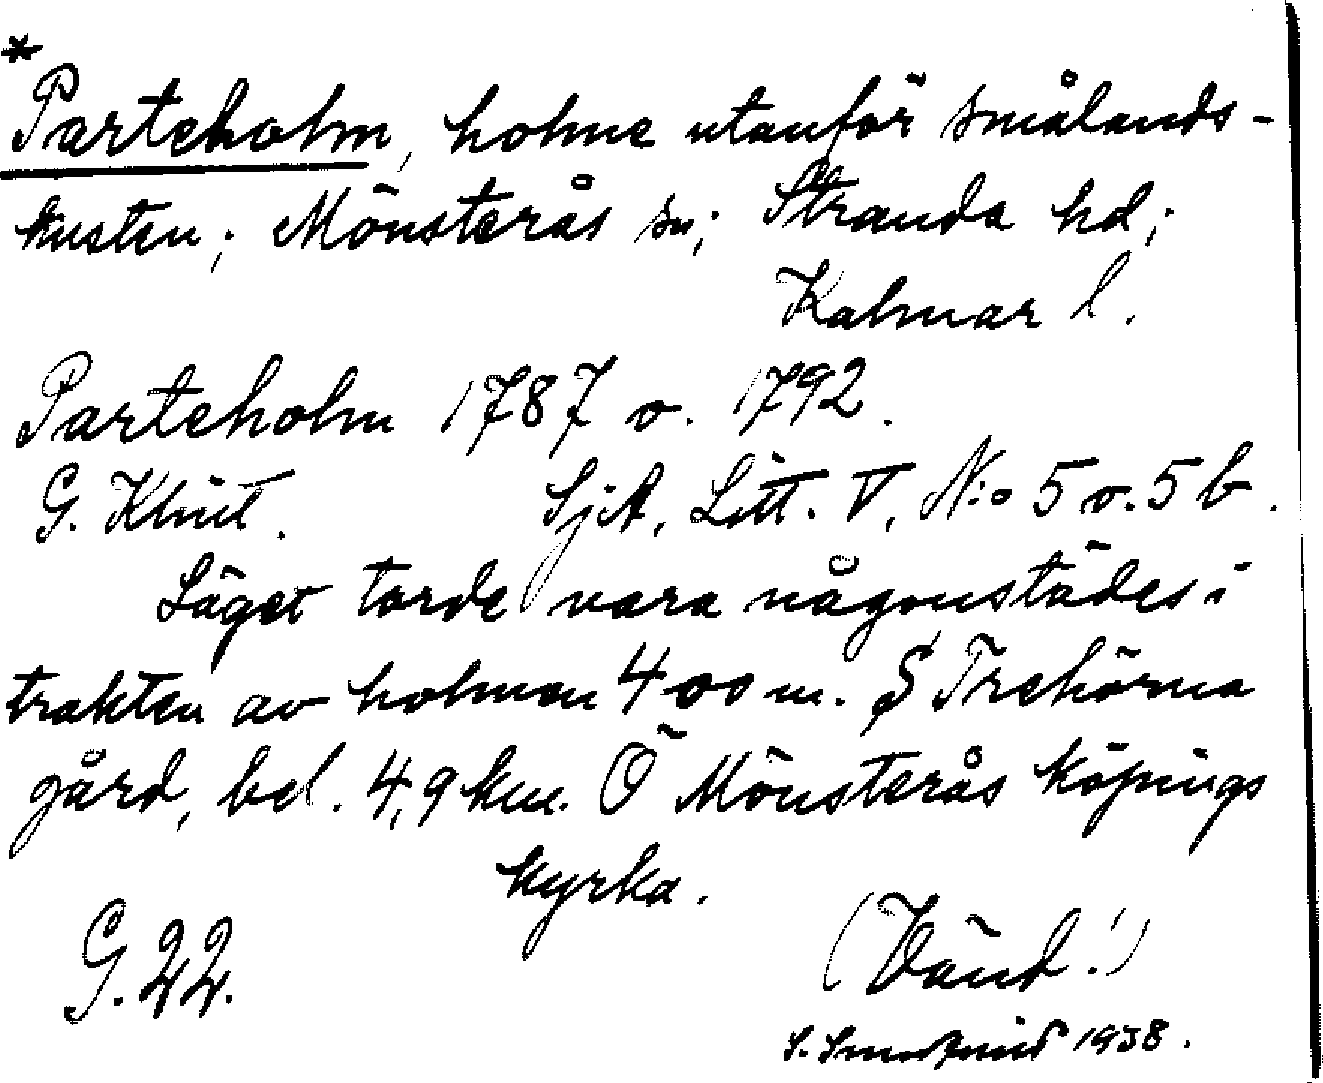 *
Parteholm, holme utanför smålands-
kusten; Mönsterås sn; Stranda hd;
Kalmar l.
Parteholm 1787 o. 1792.
G. Klint. SjA, Litt. V, N:o 5 o. 5 b.
Läget torde vara någonstädes i
trakten av holmen 400 m. S Trehörna
gård, bel. 4,9 km. Ö Mönsterås köpings
kyrka.
G. 22. (Vänd!)
S. 1938.